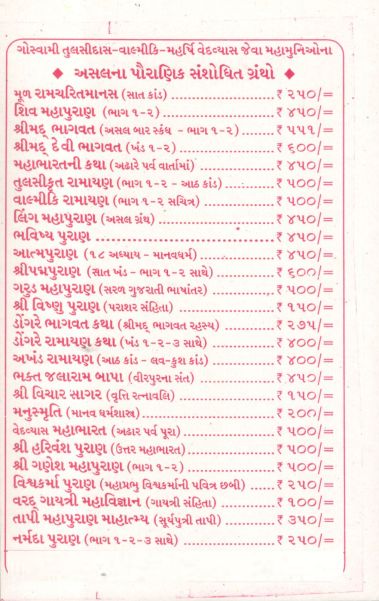 ગોસ્વામી તુલસીદાસ-વાલ્મીકિ-મહર્ષિ વેદવ્યાસ જેવા મહામુનિઓના
◆ અસલના પૌરાણિક સંશોધિત ગ્રંથો ◆
મૂળ રામચરિતમાનસ (સાત કાંડ) ........................ ₹ ૨૫૦/=
શિવ મહાપુરાણ (ભાગ ૧-૨) ........................ ₹ ૪૫૦/=
શ્રીમદ્ ભાગવત (અસલ બાર સ્કંધ - ભાગ ૧-૨) ........ ₹ ૫૫૧/=
શ્રીમદ્ દેવી ભાગવત (ખંડ ૧-૨) ........................ ₹ ૬૦૦/=
મહાભારતની કથા (અઢારે પર્વ વાર્તામાં) ................ ₹ ૪૫૦/=
તુલસીકૃત રામાયણ (ભાગ ૧-૨ - આઠ કાંડ) ........... ₹ ૫૦૦/=
વાલ્મીકિ રામાયણ (ભાગ ૧-૨ સચિત્ર) ................ ₹ ૫૦૦/=
લિંગ મહાપુરાણ (અસલ ગ્રંથ) ........................ ₹ ૪૫૦/=
ભવિષ્ય પુરાણ ........................ ₹ ૪૫૦/=
આત્મપુરાણ (૧૮ અધ્યાય - માનવધર્મ) ................ ₹ ૪૫૦/=
શ્રીપદ્મપુરાણ (સાત ખંડ - ભાગ ૧-૨ સાથે) ............ ₹ ૬૦૦/=
ગરુડ મહાપુરાણ (સરળ ગુજરાતી ભાષાંતર) ............ ₹ ૫૦૦/=
શ્રી વિષ્ણુ પુરાણ (પરાશર સંહિતા) .................... ₹ ૧૫૦/=
ડોંગરે ભાગવત કથા (શ્રીમદ્ ભાગવત રહસ્ય) ............ ₹ ૨૭૫/=
ડોંગરે રામાયણ કથા (ખંડ ૧-૨-૩ સાથે) ................ ₹ ૪૦૦/=
અખંડ રામાયણ (આઠ કાંડ - લવ-કુશ કાંડ) ............ ₹ ૪૦૦/=
ભક્ત જલારામ બાપા (વીરપુરના સંત) .................... ₹ ૪૫૦/=
શ્રી વિચાર સાગર (વૃત્તિ રત્નાવલિ) .................... ₹ ૧૫૦/=
મનુસ્મૃતિ (માનવ ધર્મશાસ્ત્ર) ........................ ₹ ૨૦૦/=
વેદવ્યાસ મહાભારત (અઢાર પર્વ પૂરા) ................ ₹ ૫૦૦/=
શ્રી હરિવંશ પુરાણ (ઉત્તર મહાભારત) ................ ₹ ૫૦૦/=
શ્રી ગણેશ મહાપુરાણ (ભાગ ૧-૨) .................... ₹ ૫૦૦/=
વિશ્વકર્મા પુરાણ (મહાપ્રભુ વિશ્વકર્માની પવિત્ર છબી) ..... ₹ ૨૫૦/=
વરદ્ ગાયત્રી મહાવિજ્ઞાન (ગાયત્રી સંહિતા) ............ ₹ ૧૦૦/=
તાપી મહાપુરાણ માહાત્મ્ય (સૂર્યપુત્રી તાપી) ............ ₹ ૩૫૦/=
નર્મદા પુરાણ (ભાગ ૧-૨-૩ સાથે) .................... ₹ ૨૫૦/=